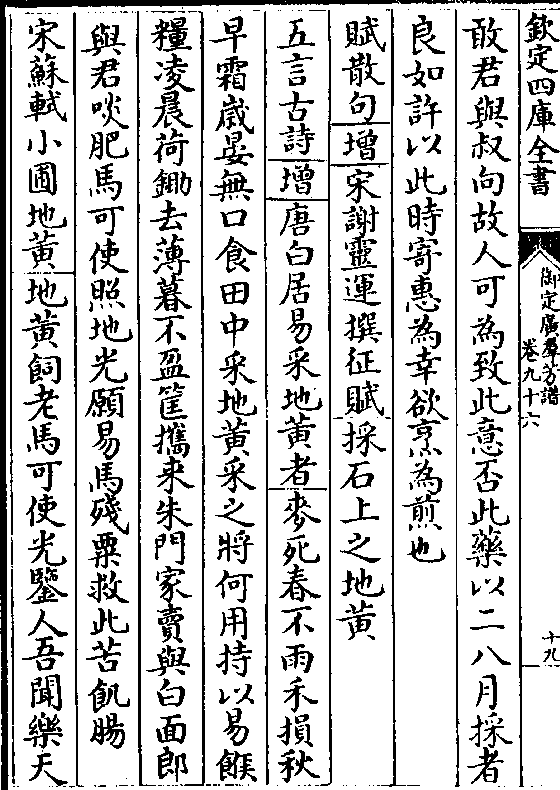 欽定四庫全書
御定廣羣芳譜
卷九十六
十九
敢君與叔向故人可為致此意否此藥以二八月採者
良如許以此時寄惠為幸欲烹為煎也
賦散句增宋謝靈運撰征賦採石上之地黃
五言古詩增唐白居易采地黃者麥死春不雨禾損秋
早霜歲晏無口食田中采地黃采之將何用持以易餱
糧凌晨荷鋤去薄暮不盈筐攜来朱門家賣與白面郎
與君啖肥馬可使照地光願易馬殘粟救此苦飢腸
宋蘇軾小圃地黃地黃飼老馬可使光鑒人吾聞樂天